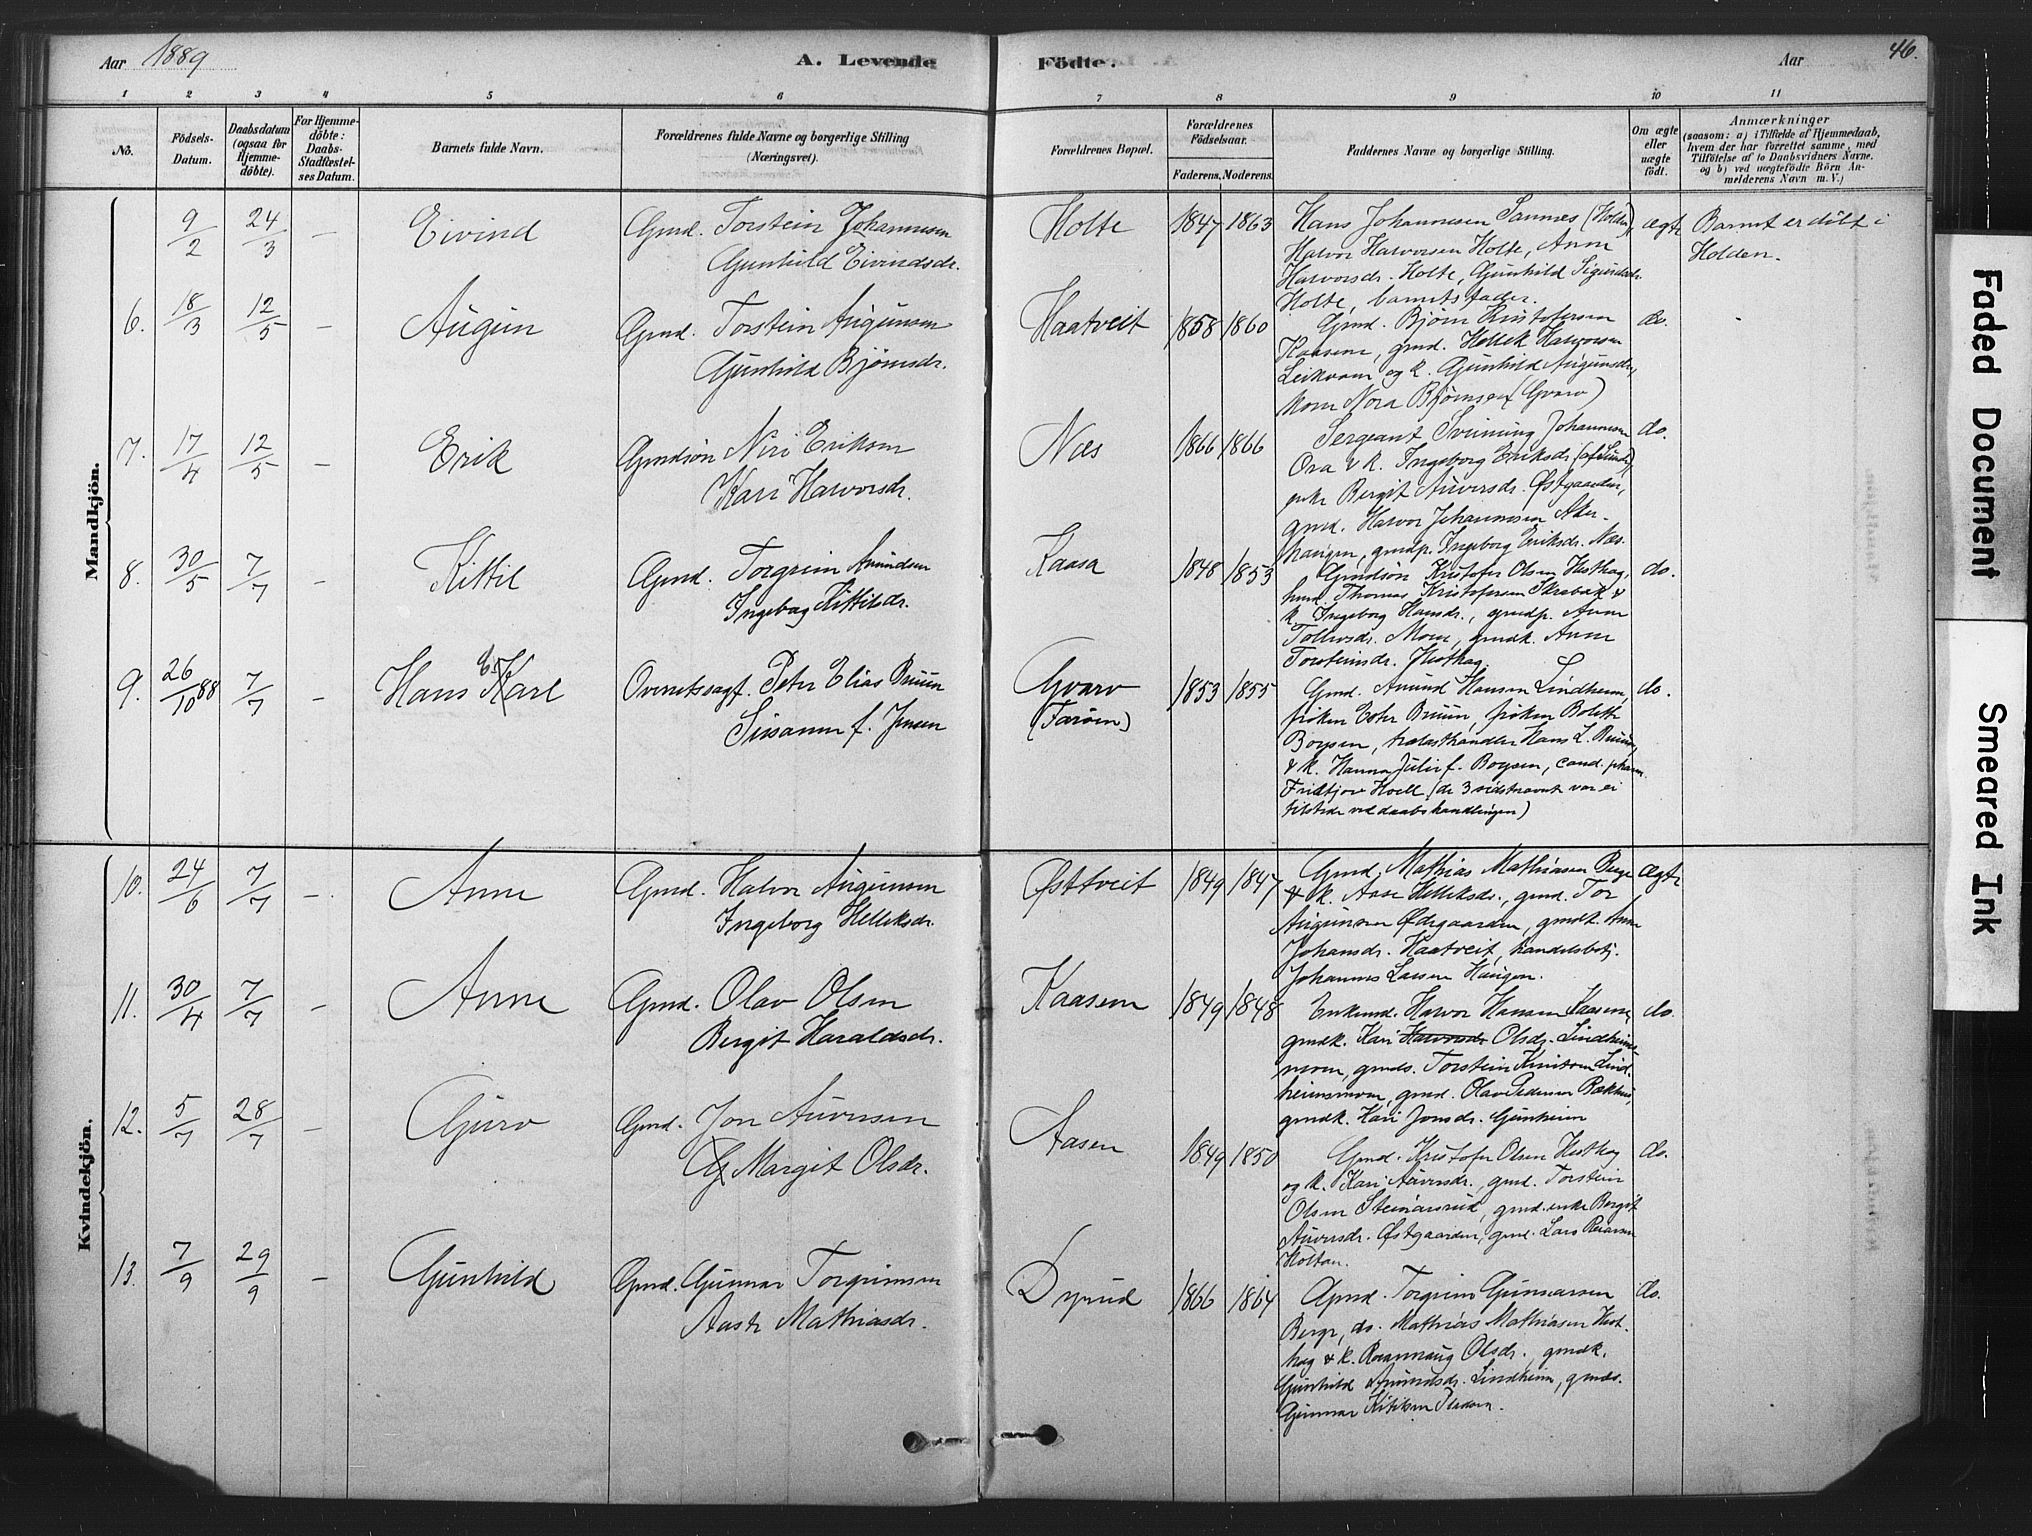 Aar 1889
A. Levende
Födte.
Aar
46.
1 2 3 4 5 6 7 8 9 10 11
No.
Födsels-
Datum.
Daabsdatum
(ogsaa for
Hjemme-
döbte).
For Hjemme-
döbte:
Daabs-
Stadfæstel-
ses Datum.
Barnets fulde Navn.
Forældrenes fulde Navne og borgerlige Stilling
(Næringsvei).
Forældrenes Bopæl.
Forældrenes
Födselsaar.
Faderens. Moderens.
Faddernes Navne og borgerlige Stilling.
Om ægte
eller
uægte
födt.
Anmærkninger
(saasom: a) i Tilfælde af Hjemmedaab,
hvem der har forrettet samme, med
Tilföielse af to Daabsvidners Navne,
og b) ved uægtefödte Börn An-
melderens Navn m. V.)
Mandkjön.
9/2 24/3 — Eivind Gmd. Torstein Johannesen
Gunhild Eivindsdr.
Holte 1847 1863
Hans Johannesen Sannes (Holden),
Halvor Halvorsen Holte, Anne
Halvorsdr. Holte, Gunhild Sigurdsdr.
Holte, barnets fader.
ægte
Barnet er døbt i
Holden.
6. 18/3 12/5 — Augun Gmd. Torstein Augunsen
Gunhild Bjørnsdr.
Haatveit 1858 1860
Gmd. Bjørn Kristofersen
Kaasene, gmd. Hellek Halvorsen
Leikvam og k. Gunhild Augunsdr.,
kone Nora Bjørnsen (Gvarv)
do.
7. 17/4 12/5 — Erik Gmdsøn Niri Eriksen
Kari Halvorsdr.
Næs 1866 1866
Sergeant Svenning Johannesen
Ora & k. Ingeborg Eriksdr. (af Lunde),
enke Bergit Auversdr. Østgaarden,
gmd. Halvor Johannesen Aker-
haugen, gmdp. Ingeborg Eriksdr. Næs.
do.
8. 30/5 7/7 — Kittil Gmd. Torgrim Amundsen
Ingeborg Kittilsdr.
Kaasa 1848 1853
Gmdsøn Kristofer Olsen Hesthag,
husmd. Thomas Kristofersen Skrabak &
k. Ingeborg Hansdr., gmdp. Anne
Tollevsdr. Moen, gmdk. Anne
Torsteinsdr. Hesthag.
do.
9. 26/10 88 7/7 — Hans E. Karl Overretssagf. Peter Elias Bruun
Susanne f. Jensen
Gvarv
(Farøen) 1853 1855
Gmd. Amund Hansen Lindheim,
frøken Ester Bruun, frøken Bolette
Boysen, trælasthandler Hans L. Bruun,
& k. Hanna Julie f. Boysen, cand. pharm.
Fridtjov Hoell (de 3 sidstnævnte var ei
tilstede ved daabshandlingen)
do.
Kvindekjön.
10. 24/6 7/7 —. Anne Gmd. Halvor Augunsen
Ingeborg Helleksdr.
Østtveit 1849 1847
Gmd. Mathias Mathiasen Berge
& k. Aase Helleksdr., gmd. Tor
Augunsen Østgaarden, gmdk. Anne
Johansdr. Haatveit, handelsbetj.
Johannes Larsen Haugen.
Ægte
11. 30/4 7/7 — Anne Gmd. Olav Olsen
Bergit Haraldsdr.
Kaasene 1849 1848
Enkemd. Halvor Hansen Kaasene,
gmdk. Kari Halvorsdr Olsdr. Lindheims-
moen, gmds. Torstein Knutsen Lind-
heimsmoen, gmd. Olav Pedersen Bækhus,
gmdk. Kari Jonsdr. Gunheim
do.
12. 5/7 28/7 — Guro Gmd. Jon Auversen
G Margit Olsdr.
Aasen 1849 1850
Gmd. Kristofer Olsen Hesthag
og k. Kari Auversdr., gmd. Torstein
Olsen Steinarsrud, gmd.enke Bergit
Auversdr. Østgaarden, gmd. Lars
Holtan.
do.
13. 7/9 29/9 — Gunhild Gmd. Gunnar Torgrimsen
Aaste Mathiasdr.
Dyrud 1866 1864
Gmd. Torgrim Gunnarsen
Berge, do. Mathias Mathiasen Hest-
hag & k. Rannaug Olsdr., gmdk.
Gunhild Amundsdr. Lindheim, gmds.
Gunnar Kittilsen
do.
Faded Document
Smeared Ink